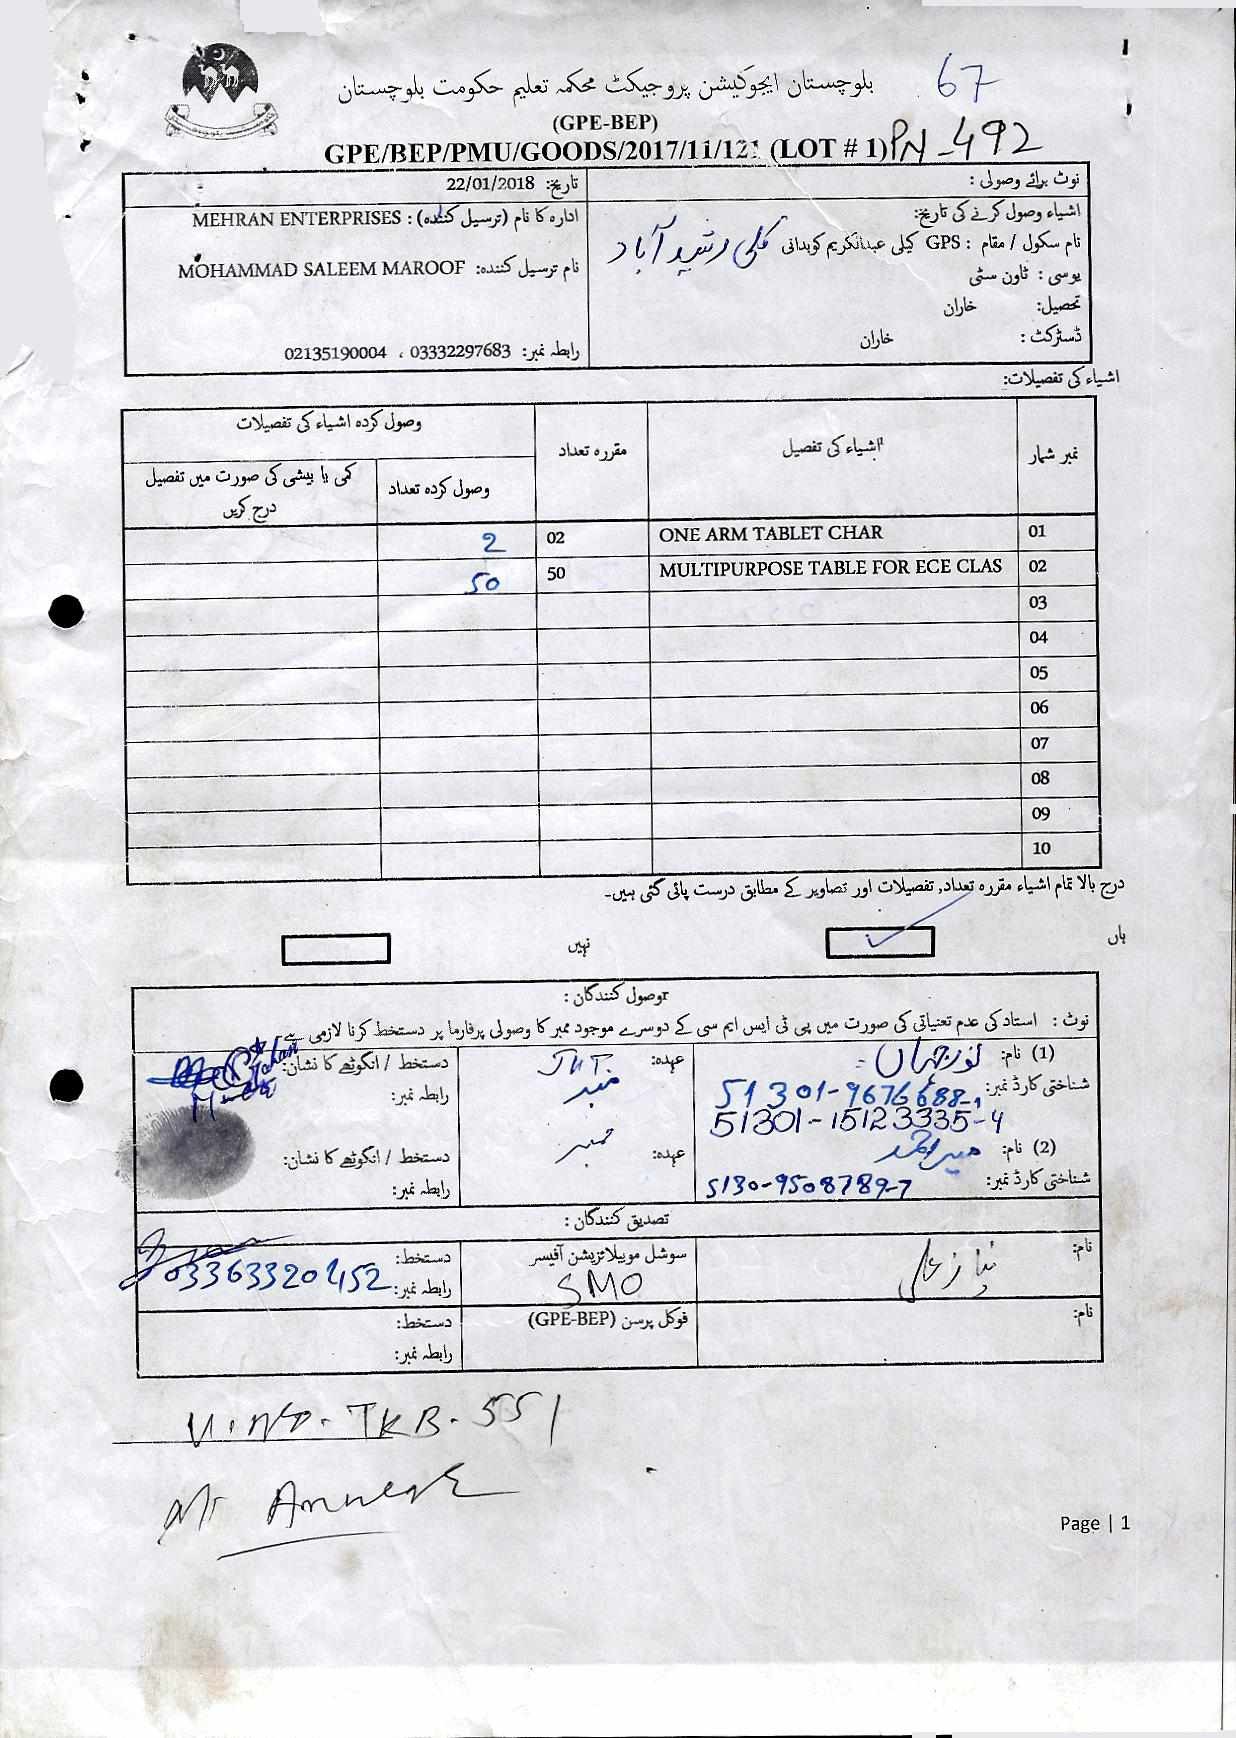 بلوچستان ایجوکیشن پروجیکٹ محکمہ تعلیم حکومت بلوچستان
67
(GPE-BEP)
GPE/BEP/PMU/GOODS/2017/11/121 (LOT # 1) PN-492
نوٹ برائے وصولی :
تاریخ: 22/01/2018
اشیاء وصول کرنے کی تاریخ:
نام سکول / مقام : GPS کیلی عبدالکریم کوبدانی کلی رشید آباد
یوسی : ٹاون سٹی
تحصیل: خاران
ڈسٹرکٹ : خاران
ادارہ کا نام (ترسیل کنندہ) : MEHRAN ENTERPRISES
نام ترسیل کنندہ: MOHAMMAD SALEEM MAROOF
رابطہ نمبر: 03332297683 ، 02135190004
اشیاء کی تفصیلات:
نمبر شمار اشیاء کی تفصیل مقررہ تعداد وصول کردہ اشیاء کی تفصیلات
وصول کردہ تعداد کمی یا بیشی کی صورت میں تفصیل درج کریں
01 ONE ARM TABLET CHAR 02 2
02 MULTIPURPOSE TABLE FOR ECE CLAS 50 50
03
04
05
06
07
08
09
10
درج بالا تمام اشیاء مقررہ تعداد, تفصیلات اور تصاویر کے مطابق درست پائی گئی ہیں۔
ہاں ✓ نہیں
وصول کنندگان :
نوٹ : استاد کی عدم تعنیاتی کی صورت میں پی ٹی ایس ایم سی کے دوسرے موجود ممبر کا وصولی پرفارما پر دستخط کرنا لازمی ہے۔
(1) نام: نورجہاں عہدہ: JVT ممبر دستخط / انگوٹھے کا نشان:
شناختی کارڈ نمبر: 51301-9676688- رابطہ نمبر:
51301-15123335-4
(2) نام: عہدہ: ممبر دستخط / انگوٹھے کا نشان:
شناختی کارڈ نمبر: 5130-9508789-7 رابطہ نمبر:
تصدیق کنندگان :
نام: نیاز علی سوشل موبیلائزیشن آفیسر SMO دستخط:
رابطہ نمبر: 03363320452
نام: فوکل پرسن (GPE-BEP) دستخط:
رابطہ نمبر:
TKB-551
Mr
Page | 1